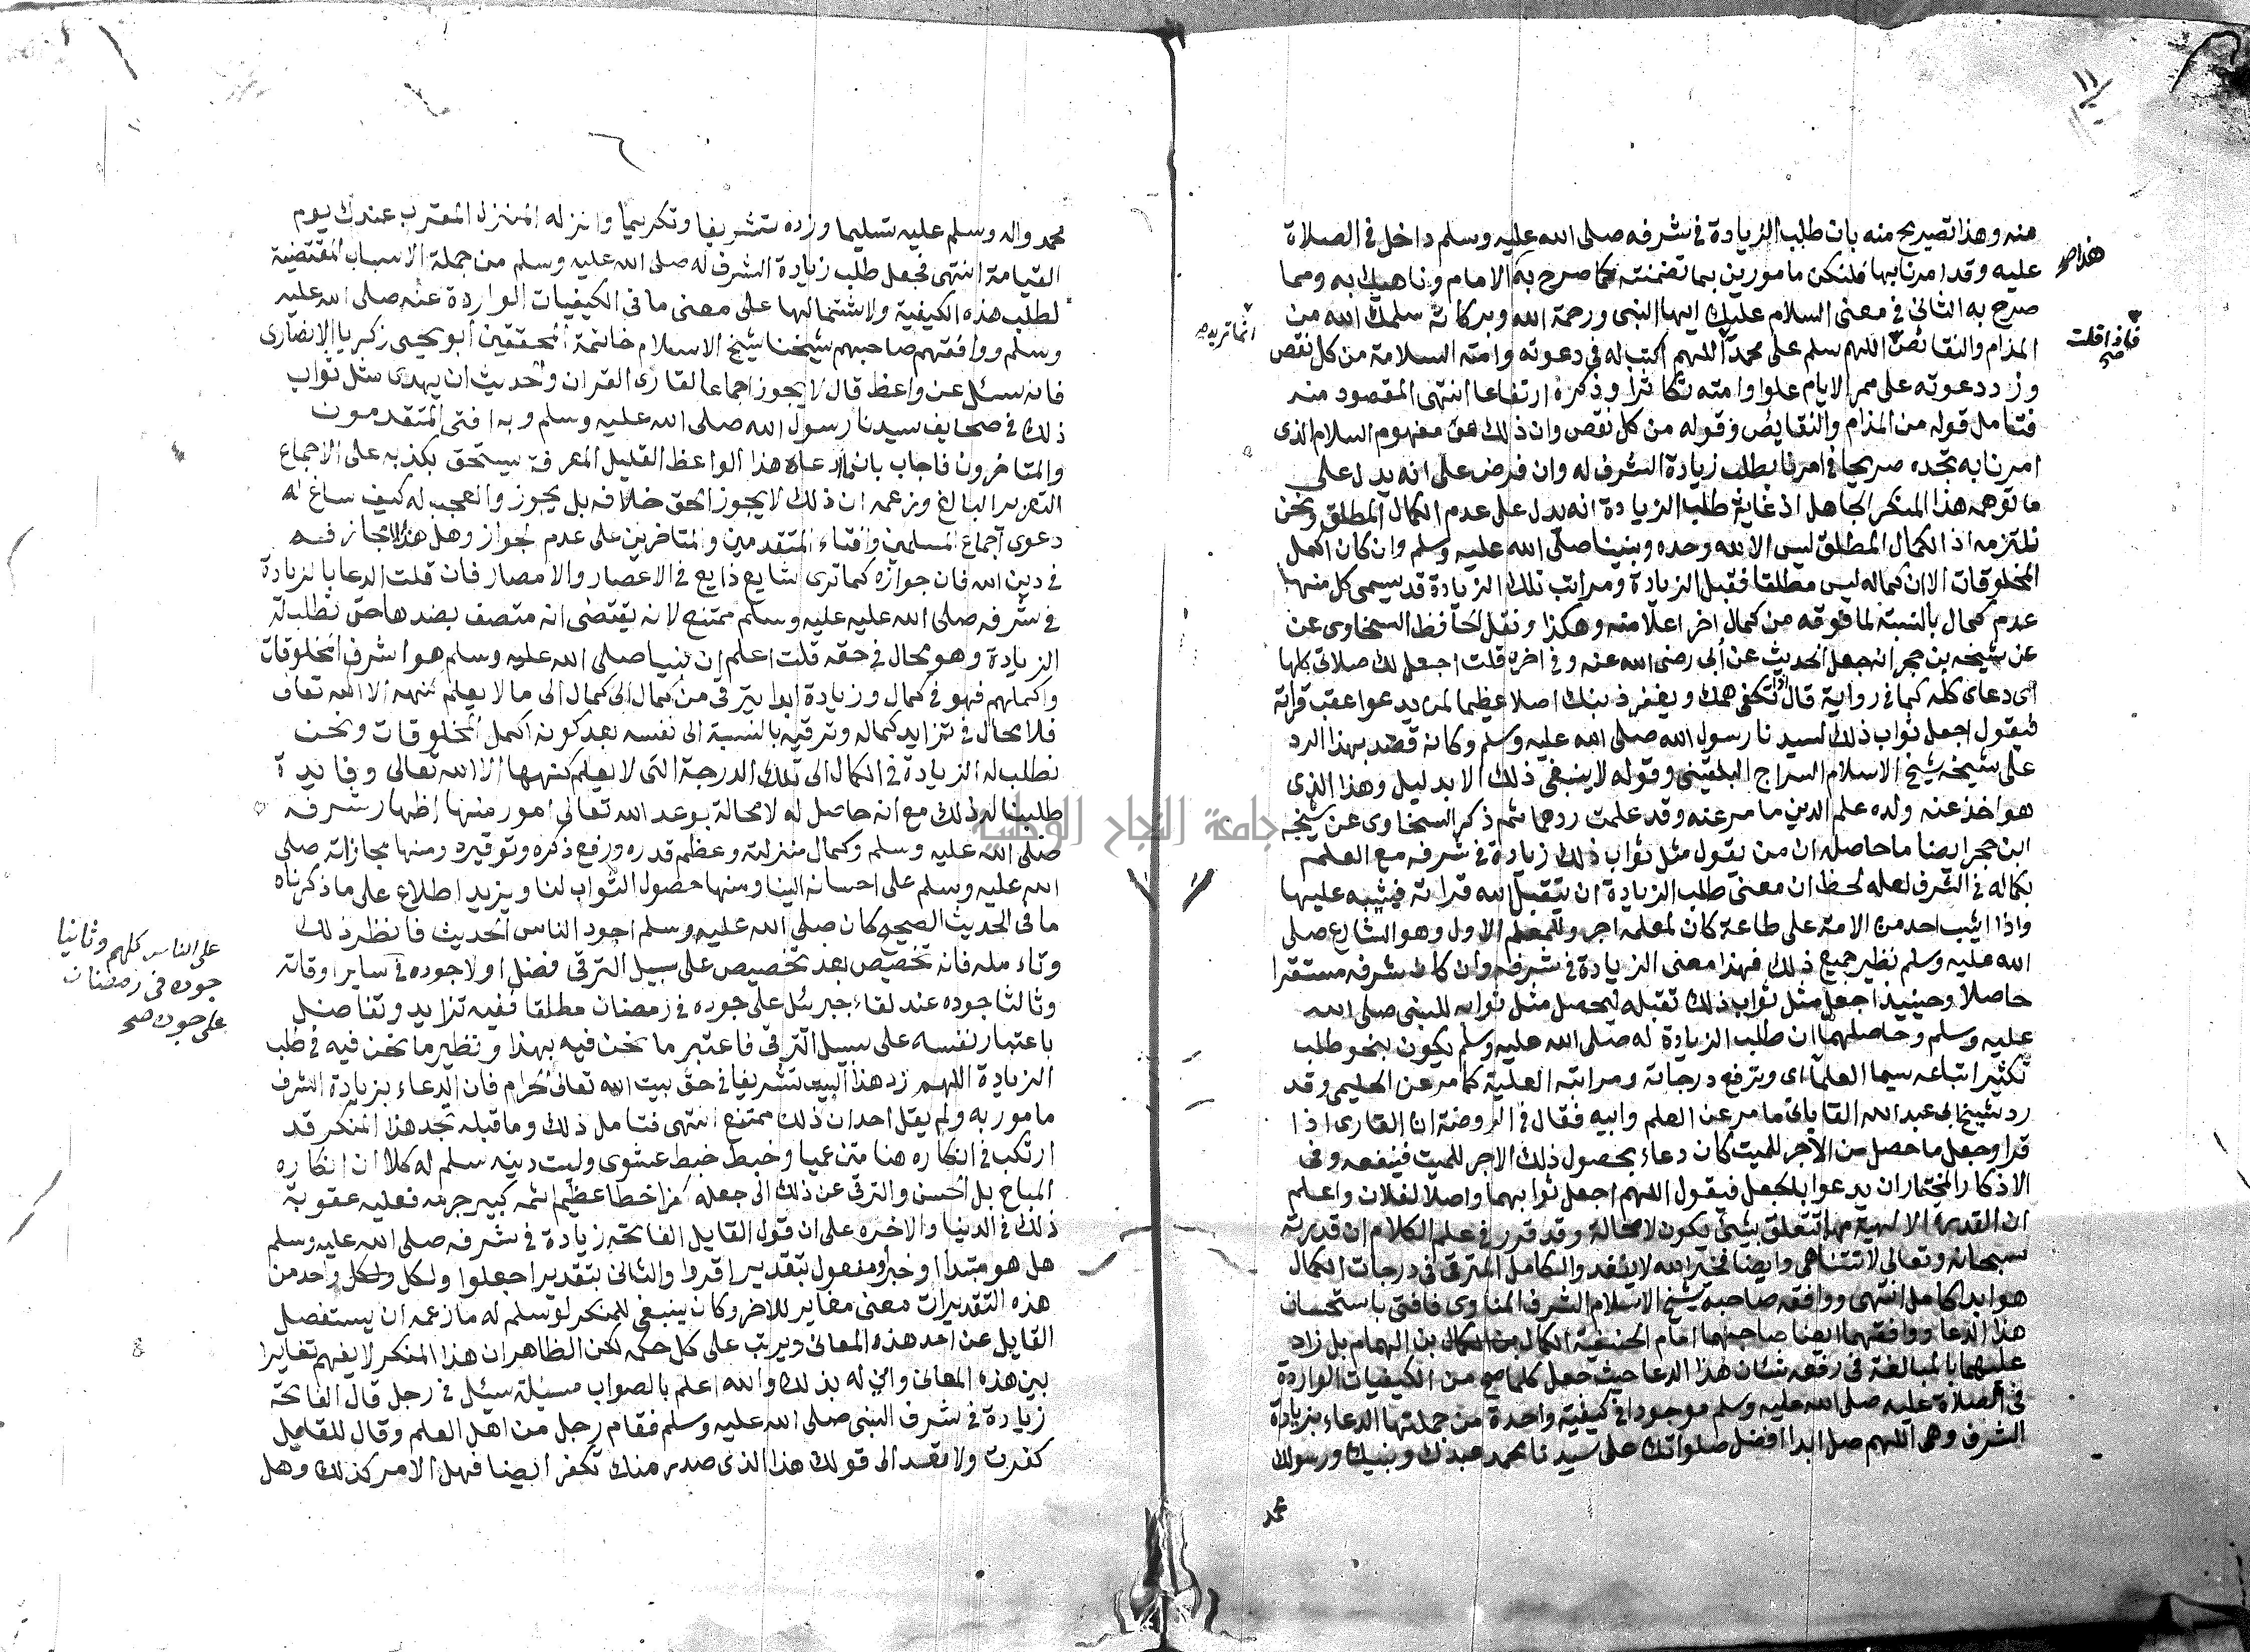 ١١
منه وهذا تصريح منه بان طلب الزيادة في شرفه صلى الله عليه وسلم داخل في الصلاة
عليه وقد امرنا بها فلنكن مامورين بما تضمنته كما صرح به الامام وناهيك به ومما
هذا صح
صرح به الثاني في معنى السلام عليك ايها النبي ورحمة الله وبركاته سلمك الله من
المذام والنقائص اللهم سلم على محمد اللهم اكتب له في دعوته وامته السلامة من كل نقص
فاذا قلت صح
انما تريد به
وزد دعوته على ممر الايام علوا وامته تكاثرا وذكره ارتفاعا انتهى المقصود منه
فتامل قوله من المذام والنقايص وقوله من كل نقص وان ذلك من مفهوم السلام الذى
امرنا به تجده صريحا في امرنا بطلب زيادة الشرف له وان فرض على انه يدل على
ما توهمه هذا المنكر الجاهل اذ غاية طلب الزيادة انه يدل على عدم الكمال المطلق ونحن
نلتزمه اذ الكمال المطلق ليس الا لله وحده ونبينا صلى الله عليه وسلم وان كان اكمل
المخلوقات الا ان كماله ليس مطلقا فقبل الزيادة ومراتب تلك الزيادة قد سيمى كل منها
عدم كمال بالنسبة لما فوقه من كمال اخر اعلا منه وهكذا ونقل الحافظ السخاوى عن
عن شيخه بن حجر انه جعل الحديث عن ابى رضى الله عنه وفي اخره قلت اجعل لك صلاتى كلها
اى دعاى كله كما في رواية قال اذا تكفى همك ويغفر ذنبك اصلا عظيما لمن يدعوا عقب قراته
فيقول اجعل ثواب ذلك لسيدنا رسول الله صلى الله عليه وسلم وكانه قصد بهذا الرد
على شيخه شيخ الاسلام السراج البلقينى وقوله لا ينبغى ذلك الا بدليل وهذا الذى
هو اخذ عنه ولده علم الدين ما مر عنه وقد علمت ردهما ثم ذكر السخاوى عن شيخه
ابن حجر ايضا ما حاصله ان من يقول مثل ثواب ذلك زيادة في شرفه مع العلم
بكماله في الشرف لعله لحظ ان معنى طلب الزيادة ان يتقبل الله قراته فيثيبه عليها
واذا اثيب احد من الامة على طاعة كان لمعلمه اجر وللمعلم الاول وهو الشارع صلى
الله عليه وسلم نظير جميع ذلك فهذا معنى الزيادة في شرفه وان كان شرفه مستقرا
حاصلا وحينيذ اجعل مثل ثواب ذلك تقبله ليحصل مثل ثوابه للنبى صلى الله
عليه وسلم وحاصلهما ان طلب الزيادة له صلى الله عليه وسلم يكون بنحو طلب
تكثير اتباعه سيما العلما اى وبترفع درجاته ومراتبه العلية كما مر عن الحليمى وقد
رد شيخ ابى عبد الله القاياتى ما مر عن العلم وابيه فقال في الروضة ان القارى اذا
قرا وجعل ما حصل من الاجر للميت كان دعاء بحصول ذلك الاجر للميت فينفعه وفى
الاذكار المختار ان يدعوا بالجعل فيقول اللهم اجعل ثوابهما واصلا لفلان واعلم
ان القدرة الالهية مهما تتعلق بشئ يكون لا محالة وقد قرر في علم الكلام ان قدرته
سبحانه وتعالى لا تتناهى وايضا فخير الله لا ينفد والكامل المترقى في درجات الكمال
هو ابدا كامل انتهى ووافقه صاحبه شيخ الاسلام الشرف المناوى فافتى باستحسان
هذا الدعا ووافقهما ايضا صاحبهما امام الحنيفية الكمال بن الهمام بل زاد
عليهما بالمبالغة في رفعه شان هذا الدعا حيث جعل كلما صح من الكيفيات الواردة
في الصلاة عليه صلى الله عليه وسلم موجودا في كيفية واحدة من جملتها الدعاء بزيادة
الشرف وهى اللهم صل ابدا افضل صلواتك على سيدنا محمد عبدك ونبيك ورسولك
محمد
محمد واله وسلم عليه تسليما وزده تشريفا وتكريما وانزله المنزل المقرب عندك يوم
القيامة انتهى فجعل طلب زيادة الشرف له صلى الله عليه وسلم من جملة الاسباب المقتضية
لطلب هذه الكيفية ولاشتمالها على معنى ما في الكيفيات الواردة عنه صلى الله عليه
وسلم ووافقهم صاحبهم شيخنا شيخ الاسلام خاتمة المحققين ابو يحيى زكريا الانصارى
فانه سئل عن واعظ قال لا يجوز اجماعا لقارى القران والحديث ان يهدى مثل ثواب
ذلك في صحايف سيدنا رسول الله صلى الله عليه وسلم وبه افتى المتقدمون
والمتاخرون فاجاب بان ما ادعاه هذا الواعظ القليل المعرفة سيتحق بكذبه على الاجماع
التعزير البالغ وزعمه ان ذلك لا يجوز الحق خلافه بل يجوز والعجب له كيف ساغ له
دعوى اجماع المسلمين وافتاء المتقدمين والمتاخرين على عدم الجواز وهل هذا الا مجازفه
في دين الله فان جوازه كما ترى شايع ذايع في الاعصار والامصار فان قلت الدعا بالزيادة
في شرفه صلى الله عليه عليه وسلم ممتنع لانه يقتضى انه متصف بضدها حتى نطلب له
الزيادة وهو محال في حقه قلت اعلم ان نبينا صلى الله عليه وسلم هو اشرف المخلوقات
واكملهم فهو في كمال وزيادة ابدا يترقى من كمال الى كمال الى ما لا يعلم كنهه الا الله تعالى
فلا محال في تزايد كماله وترقيه بالنسبة الى نفسه بعد كونه اكمل المخلوقات ونحن
نطلب له الزيادة في الكمال الى تلك الدرجة التى لا يعلم كنهها الا الله تعالى وفايدة
طلبنا له ذلك مع انه حاصل له لا محالة بوعد الله تعالى امور منها اظهار شرفه
جامعة النجاح الوطنية
صلى الله عليه وسلم وكمال منزلته وعظم قدره ورفع ذكره وتوقيره ومنها مجازاته صلى
الله عليه وسلم على احسانه الينا ومنها حصول الثواب لنا ويزيد اطلاع على ما ذكرناه
ما في الحديث الصحيح كان صلى الله عليه وسلم اجود الناس الحديث فانظر ذلك
وتامله فانه تخصيص بعد تخصيص على سبيل الترقى فضل اولا جوده في ساير اوقاته
على الناس كلهم وثانيا
جوده في رمضان
على جوده صح
وثالثا جوده عند لقاء جبرئل على جوده في رمضان مطلقا ففيه تزايد وتفاضل
باعتبار نفسه على سبيل الترقى فاعتبر ما نحن فيه بهذا ونظير ما نحن فيه في طلب
الزيادة اللهم زد هذا البيت تشريفا في حق بيت الله تعالى الحرام فان الدعاء بزيادة الشرف
مامور به ولم يقل احد ان ذلك ممتنع انتهى فتامل ذلك وما قبله تجد هذا المنكر قد
ارتكب في انكاره هنا متن عميا وخبط خبط عشوى وليت دينه سلم له كلا ان انكاره
المباح بل الحسن والترقى عن ذلك الى جعله كفرا خطا عظيم اثمه كبير جرمه فعليه عقوبة
ذلك في الدنيا والاخره على ان قول القايل الفاتحة زيادة في شرفه صلى الله عليه وسلم
هل هو مبتدا او خبر او مفعول بتقدير اقروا والثانى بتقدير اجعلوا ولكل واحد من
هذه التقديرات معنى مغاير للاخر وكان ينبغى للمنكر لو سلم له ما زعمه ان يستفصل
القايل عن احد هذه المعانى ويرتب على كل حكمه لكن الظاهر ان هذا المنكر لا يفهم تغايرا
بين هذه المعانى وانى له بذلك والله اعلم بالصواب مسئلة سئل في رجل قال الفاتحة
زيادة في شرف النبى صلى الله عليه وسلم فقام رجل من اهل العلم وقال للقايل
كفرت ولا تعد الى قولك هذا الذى صدر منك تكفر ايضا فهل الامر كذلك وهل